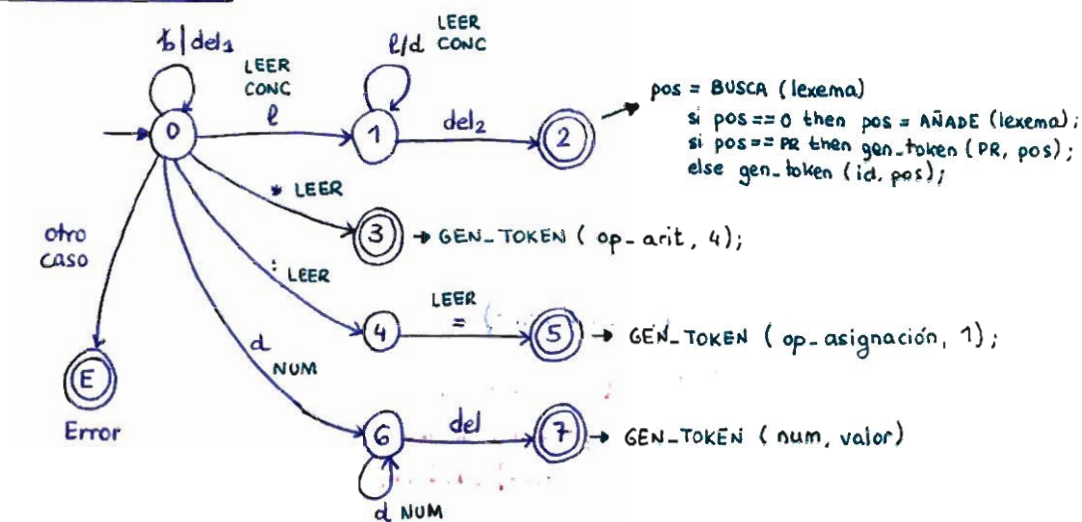 LEER
LEER
CONC
l/d
ƀ|del₁
LEER
CONC
l
0
1
del₂
2
pos = BUSCA (lexema)
si pos==0 then pos = AÑADE (lexema);
si pos==PR then gen_token (PR, pos);
else gen_token (id, pos);
* LEER
3
→ GEN_TOKEN ( op_arit, 4);
otro
caso
: LEER
4
LEER
=
5
→ GEN_TOKEN ( op_asignación, 1);
d
NUM
E
Error
6
del
7
→ GEN_TOKEN ( num, valor)
d NUM